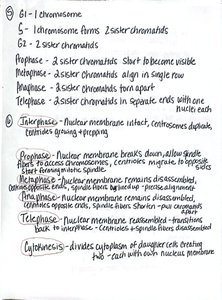 ⑤ G1 - 1 chromosome
S - 1 chromosome forms 2 sister chromatids
G2 - 2 sister chromatids
Prophase - 2 sister chromatids start to become visible
Metaphase - 2 sister chromatids align in single row
Anaphase - 2 sister chromatids torn apart
Telephase - 2 sister chromatids in separate ends with one
nuclei each
⑥ Interphase - Nuclear membrane intact, centrosomes duplicate,
centrioles growing + prepping
Prophase - Nuclear membrane breaks down, allow spindle
fibers to access chromosomes, centrioles migrate to opposite
start forming mitotic spindle sides
Metaphase - Nuclear membrane remains disassembled,
centrioles opposite ends, spindle fibers lined up - precise alignment
Anaphase - Nuclear membrane remains disassembled,
centrioles opposite ends, spindle fibers shorten - pull chromatids
apart
Telephase - Nuclear membrane reassembled - transitions
back to interphase - Centrioles + spindle fibers disassembled
Cytokinesis - divides cytoplasm of daughter cells creating
two - each with own nucleus membrane